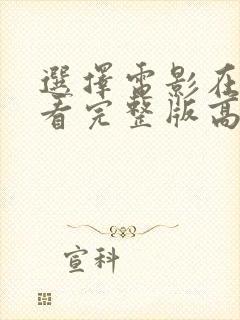 選擇雷影在
看完整版高
宣科